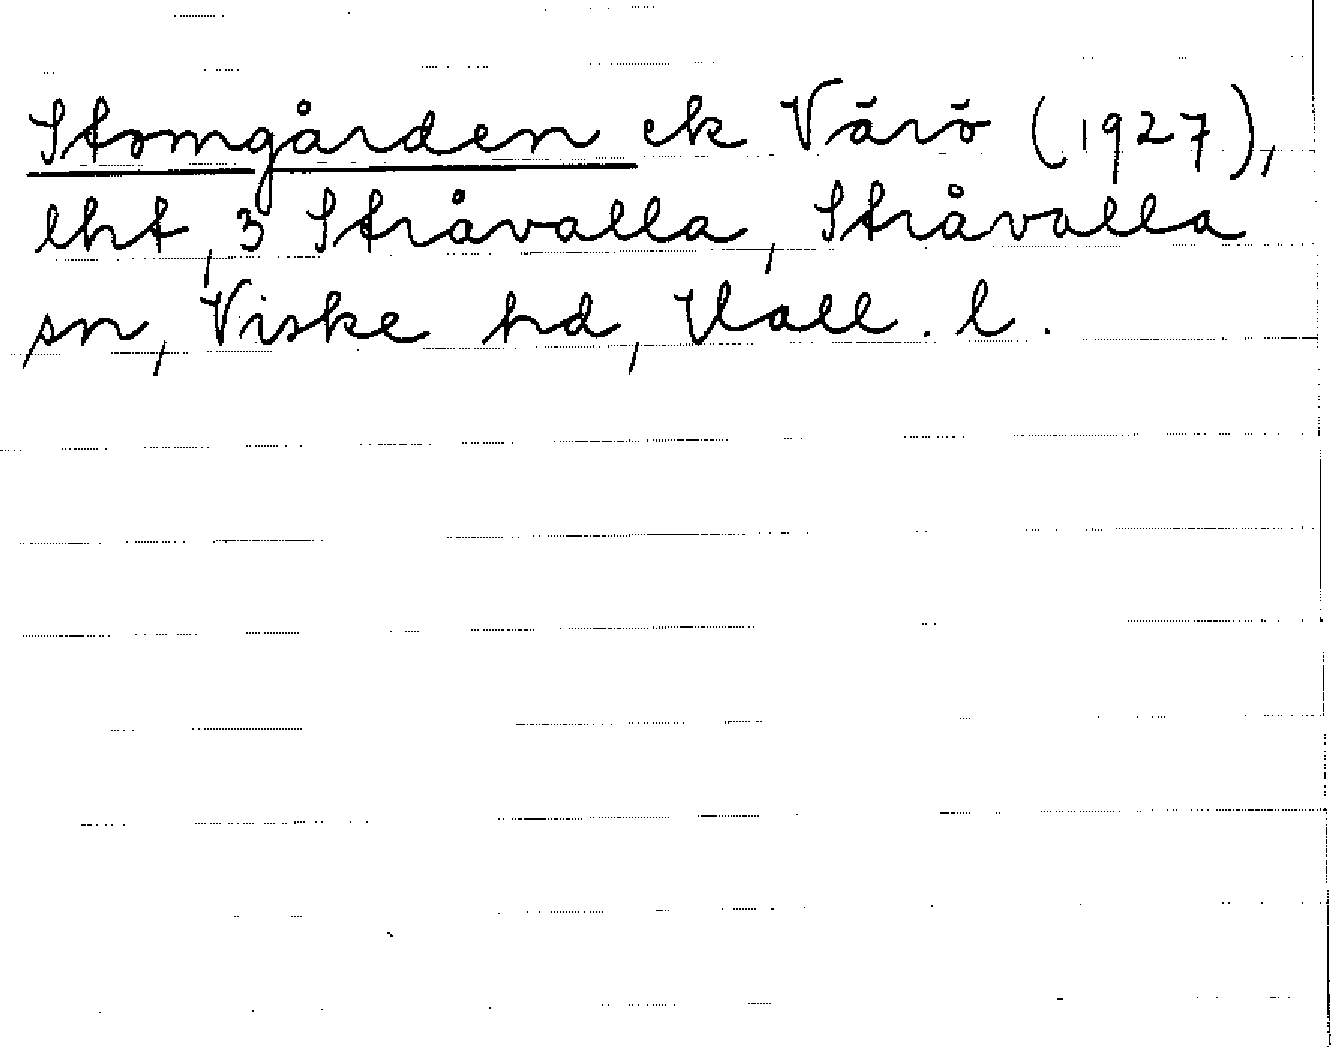 Stomgården ek Värö (1927),
lht, 3 Stråvalla, Stråvalla
sn, Viske hd, Hall. l.